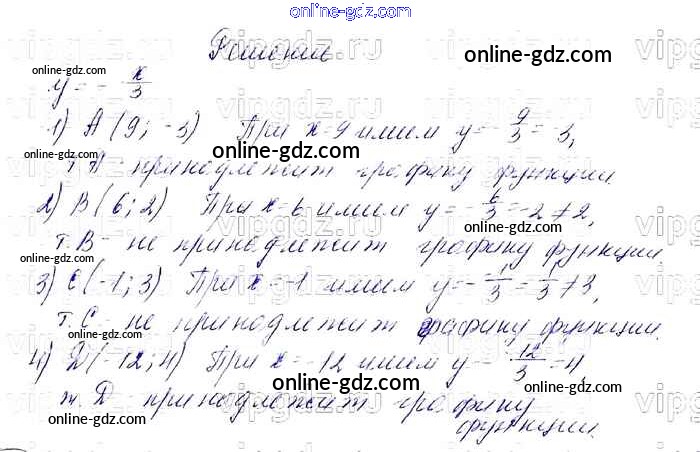 online-gdz.com
Решение
y = - x/3
1) A (9; -3) При x=9 имеем y=-9/3=-3,
т.A - принадлежит графику функции.
2) B (6; 2) При x=6 имеем y=-6/3=-2≠2,
т.B - не принадлежит графику функции.
3) C (-1; 3) При x=-1 имеем y=--1/3=1/3≠3,
т.C - не принадлежит графику функции.
4) D (-12; 4) При x=-12 имеем y=--12/3=4
т.D - принадлежит графику
функции.
online-gdz.com
online-gdz.com
online-gdz.com
online-gdz.com
online-gdz.com
online-gdz.com
online-gdz.com
online-gdz.com
online-gdz.com
vipgdz.ru